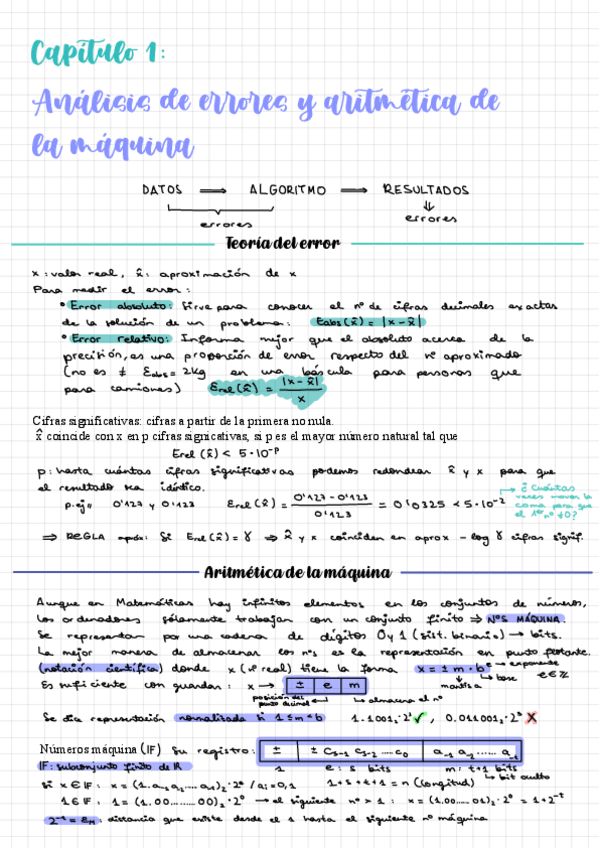 Capítulo 1:
Análisis de errores y aritmética de
la máquina
DATOS ⟹ ALGORITMO ⟹ RESULTADOS
errores
⇓
errores
Teoría del error
x: valor real, x̂: aproximación de x
Para medir el error:
• Error absoluto: Sirve para conocer el nº de cifras decimales exactas
de la solución de un problema: Eabs(x̂) = |x-x̂|
• Error relativo: Informa mejor que el absoluto acerca de la
precisión, es una proporción de error respecto del nº aproximado
(no es ≠ Eabs = 2kg en una báscula para personas que
para camiones) Erel(x̂) = |x-x̂| / x
Cifras significativas: cifras a partir de la primera no nula.
x̂ coincide con x en p cifras signicativas, si p es el mayor número natural tal que
Erel(x̂) < 5·10⁻ᵖ
p: hasta cuántas cifras significativas podemos redondear x̂ y x para que
el resultado sea idéntico.
p.ej= 0'127 y 0'123 Erel(x̂) = 0'127-0'123 / 0'123 = 0'0325 < 5·10⁻²
→ ¿Cuántas
veces mover la
coma para que
el 1er nº ≠0?
⟹ REGLA aprox: Si Erel(x̂) = γ ⟹ x̂ y x coinciden en aprox -log γ cifras signif.
Aritmética de la máquina
Aunque en Matemáticas hay infinitos elementos en los conjuntos de números,
los ordenadores solamente trabajan con un conjunto finito ⟹ NºS MÁQUINA.
Se representan por una cadena de dígitos 0 y 1 (sist. binario) → bits.
La mejor manera de almacenar los nºs es la representación en punto flotante.
(notación científica) donde x (nº real) tiene la forma x = ± m · bᵉ → exponente
→ base e∈ℤ
mantisa
Es suficiente con guardar: x → ± | e | m
posición del
punto decimal
→ almacena el nº
Se dice representación normalizada si 1 ≤ m < b 1.1001₂·2¹ ✓, 0.011001₂·2³ X
Números máquina (IF) Su registro: ± | ± cs-1 cs-2 .... c0 | a-1 a-2 ...... a-t
IF: subconjunto finito de IR 1 e: s bits m: t+1 bits
→ bit oculto
si x ∈ IF: x = (1.a-1a-2.... a-t)₂·2ᵉ / ai=0,1 1+s+t+1 = n (longitud)
1 ∈ IF: 1 = (1.00......00)₂·2⁰ → el siguiente nº > 1: x = (1.00.....01)₂·2⁰ = 1+2⁻ᵗ
2⁻ᵗ = εM: distancia que existe desde el 1 hasta el siguiente nº máquina